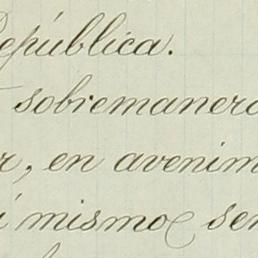 República.
sobremanera
r, en avenim
í mismo sen